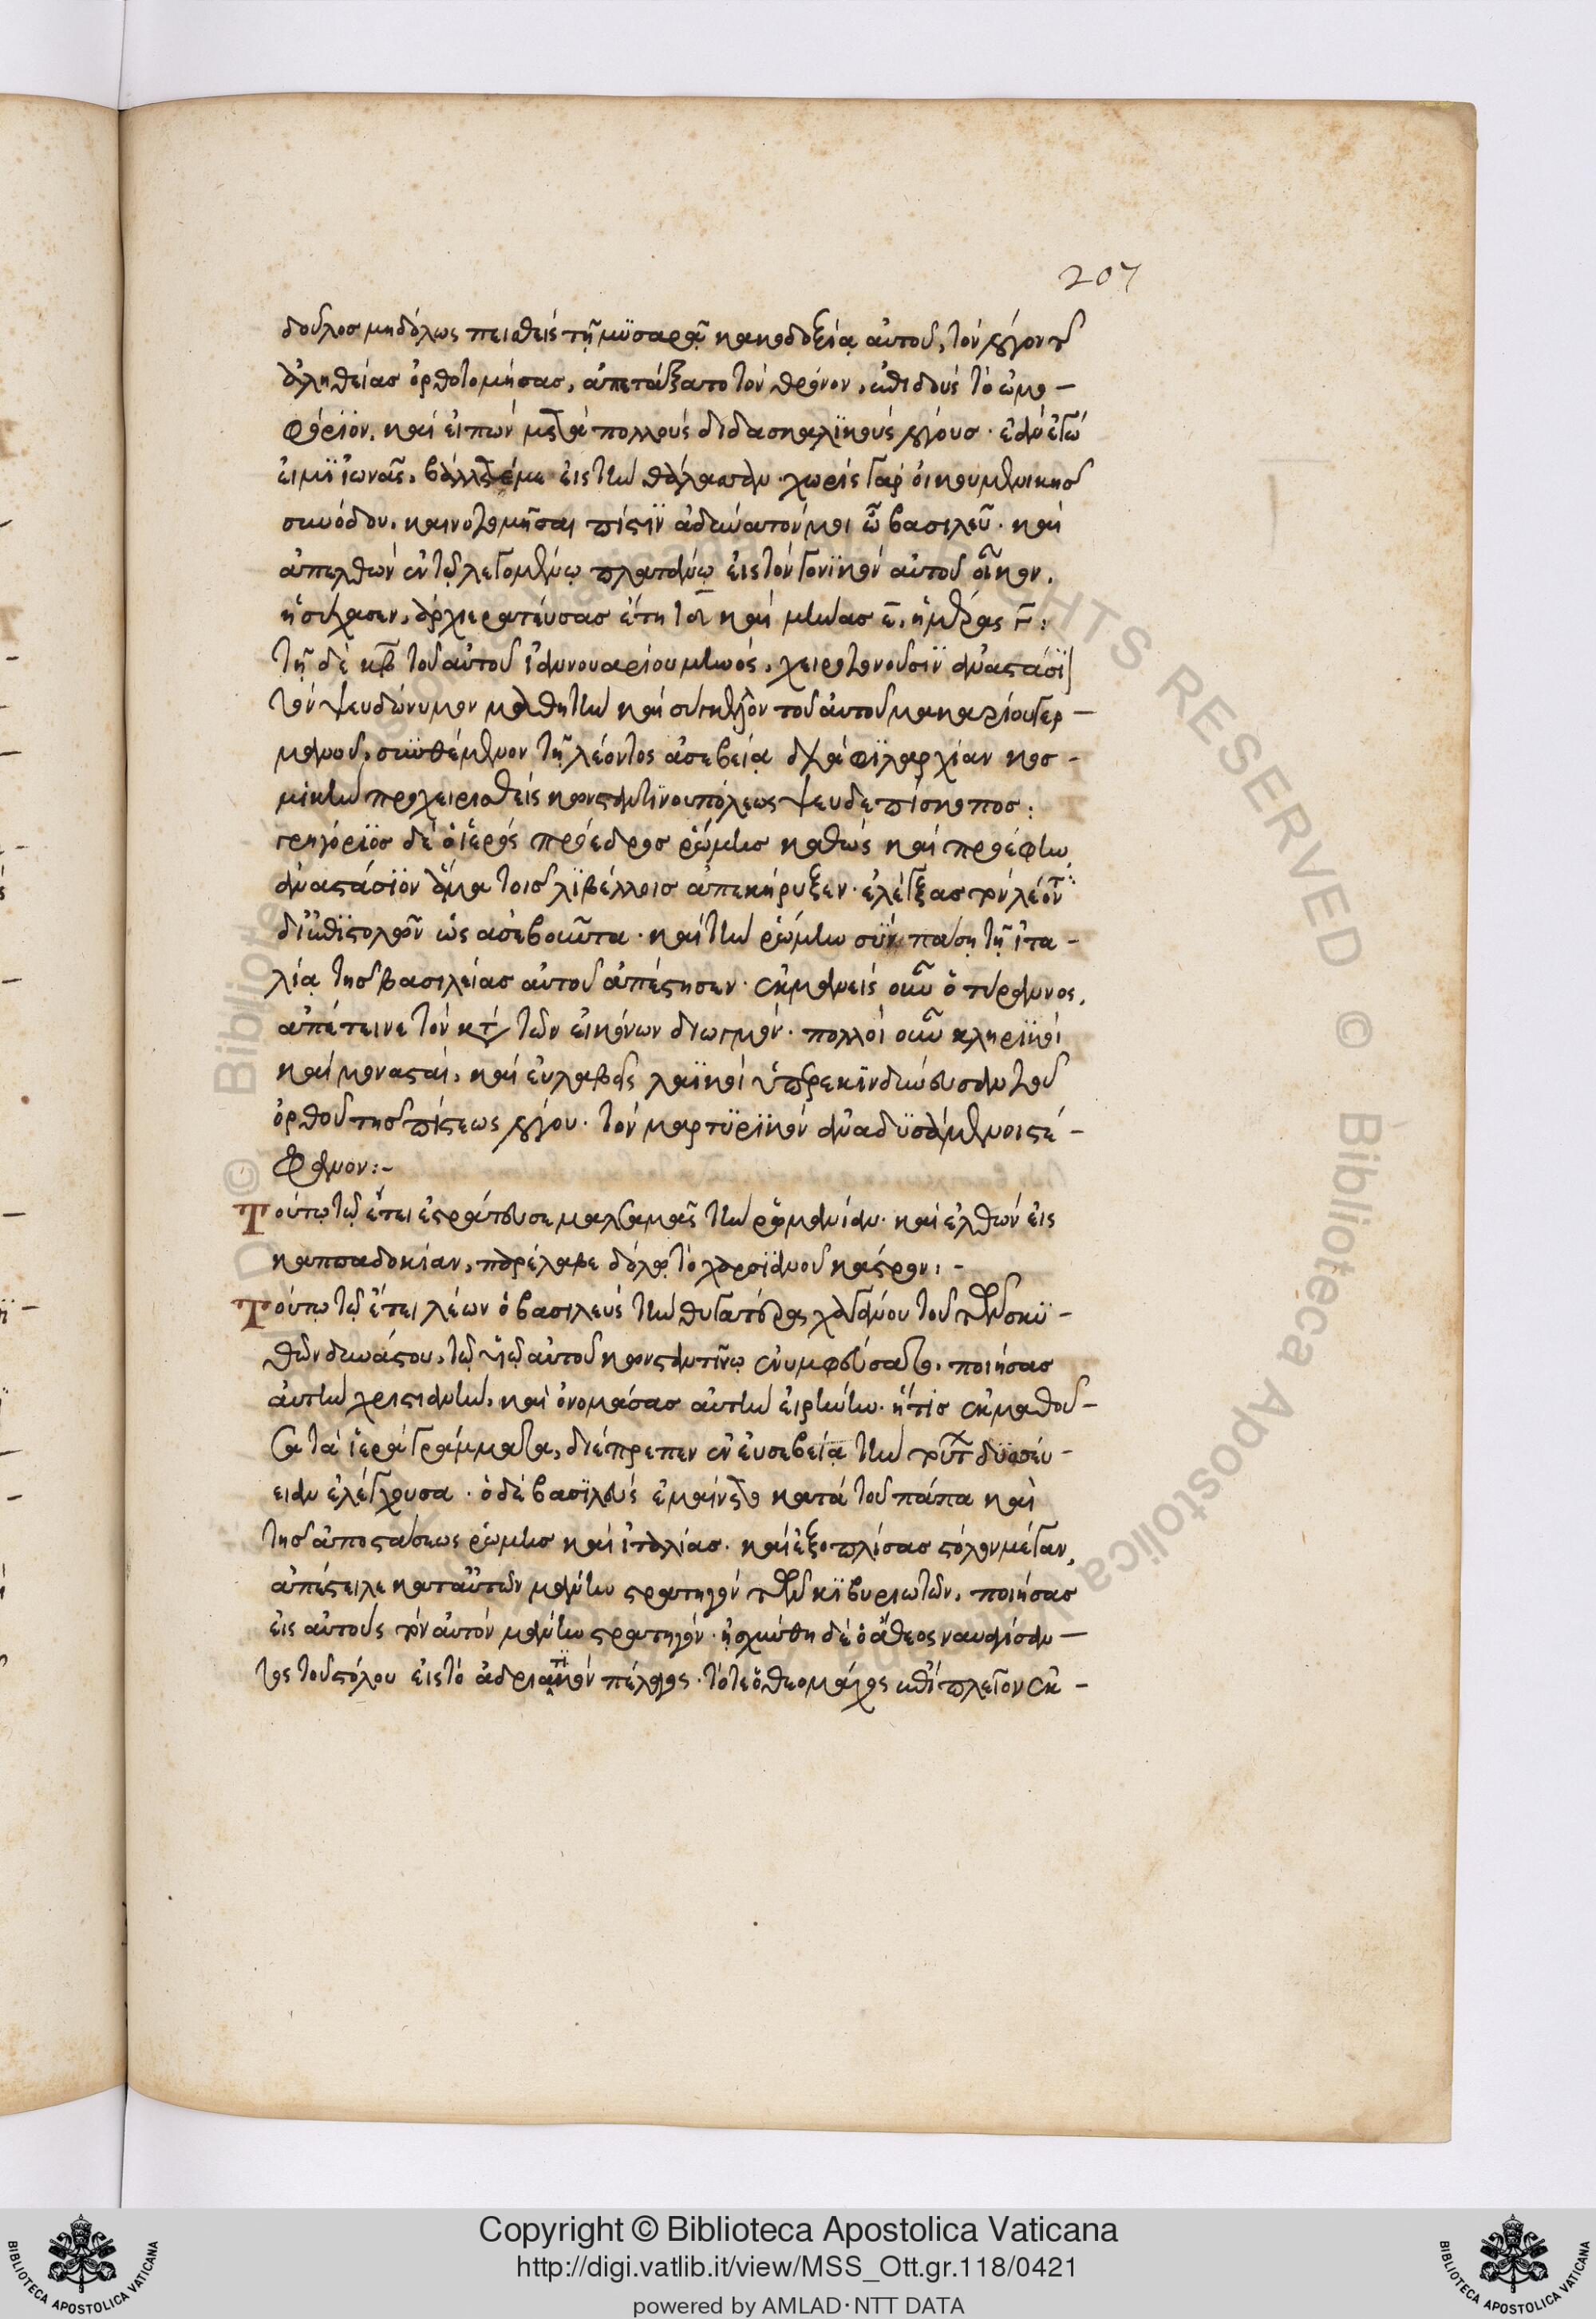 207
δοῦλος μηδόλως πεισθεὶς τῇ μϋσαρᾷ κακοδοξίᾳ αὐτοῦ, τὸν λόγον τῆς
ἀληθείας ὀρθοτομήσας, ἀπετάξατο τὸν θρόνον, ἐπιδοὺς τὸ ὠμο-
φόριον. καὶ εἰπὼν μετὰ πολλοὺς διδασκαλϊκοὺς λόγους· ἐὰν ἐγώ
εἰμϊ ἰωνᾶς, βάλλετέ με εἰς τὴν θάλασσαν· χωρὶς γὰρ οἰκουμενικῆς
συνόδου, καινοτομῆσαι πίστϊν ἀδύνατόν μοι ὦ βασιλεῦ· καὶ
ἀπελθὼν ἐν τῷ λεγομένῳ πλατανίῳ εἰς τὸν γονϊκὸν αὐτοῦ οἶκον,
ἡσύχασεν, ἀρχιερατεύσας ἔτη ιδ καὶ μῆνας ε, ἡμέρας γ:
τῇ δὲ κβ τοῦ αὐτοῦ ἰαννουαρίου μηνός, χειροτονοῦσϊν ἀναστάσϊ
τὸν ψευδώνυμον μαθητὴν καὶ σύγκελλον τοῦ αὐτοῦ μακαρίου γερ-
μανοῦ, συνθέμενον τῇ λέοντος ἀσεβείᾳ διὰ φϊλαρχίαν κοσ-
μικὴν προχειρισθεὶς κωνσταντϊνουπόλεως ψευδεπίσκοπος:
γρηγόρϊος δὲ ὁ ἱερὸς πρόεδρος ῥώμης καθὼς καὶ προέφην,
ἀναστάσϊον ἅμα τοῖς λϊβέλλοις ἀπεκήρυξεν· ἐλέγξας τὸν λέοντ
δι ἐπϊστολῶν ὡς ἀσεβοῦντα· καὶ τὴν ῥώμην σὺν πάσῃ τῇ ἰτα-
λίᾳ τῆς βασιλείας αὐτοῦ ἀπέστησεν· ἐκμανεὶς οὖν ὁ τύραννος,
ἀπέτεινε τὸν κατὰ τῶν εἰκόνων διωγμόν· πολλοὶ οὖν κληρϊκοὶ
καὶ μοναστοὶ, καὶ εὐλαβεῖς λαϊκοὶ ὑπερεκϊνδύνευσαν τοῦ
ὀρθοῦ τῆς πίστεως λόγου· τὸν μαρτϋρϊκὸν ἀναδϋσάμενοι στέ-
φανον:-
Τούτῳ τῷ ἔτει ἐστράτευσε μασαλμᾶς τὴν ῥωμανίαν· καὶ ἐλθὼν εἰς
καππαδοκίαν, παρέλαβε δόλῳ τὸ χαρσϊανοῦ κάστρον:-
Τούτῳ τῷ ἔτει λέων ὁ βασιλεὺς τὴν θυγατέρα χαγάνου τοῦ τῶν σκϋ-
θῶν δυνάστου, τῷ υἱῷ αὐτοῦ κωνσταντίνῳ ἐνυμφεύσατο. ποιήσας
αὐτὴν χριστιανὴν, καὶ ὀνομάσας αὐτὴν εἰρήνην· ἥτις ἐκμαθοῦ-
σα τὰ ἱερὰ γράμματα, διέπρεπεν ἐν εὐσεβείᾳ τὴν τούτων δϋσσέβ-
ειαν ἐλέγχουσα· ὁ δὲ βασϊλεὺς ἐμαίνετο κατὰ τοῦ πάπα καὶ
τῆς ἀποστάσεως ῥώμης καὶ ἰταλίας· καὶ ἐξοπλίσας στόλον μέγαν,
ἀπέστειλε κατ αὐτῶν μάνην στρατηγὸν τῶν κϊβυριωτῶν, ποιήσας
εἰς αὐτοὺς τὸν αὐτὸν μάνην στρατηγόν· ᾐσχύνθη δὲ ὁ ἄθεος ναυαγίσαν-
τος τοῦ στόλου εἰς τὸ ἀδριατϊκὸν πέλαγος· τότε ὁ θεομάχος ἐπὶ πλεῖον ἐκ-
Copyright © Biblioteca Apostolica Vaticana
http://digi.vatlib.it/view/MSS_Ott.gr.118/0421
powered by AMLAD·NTT DATA